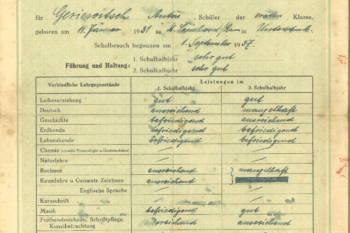 für Schüler der ersten Klasse,
geboren am 11. Jänner 1931 in
Schulbesuch begonnen am 1. September 1937.
Führung und Haltung: 1. Schulhalbjahr sehr gut
2. Schulhalbjahr sehr gut
Verbindliche Lehrgegenstände Leistungen im
1. Schulhalbjahr 2. Schulhalbjahr
Leibeserziehung gut gut
Deutsch ausreichend mangelhaft
Geschichte befriedigend ausreichend
Erdkunde befriedigend befriedigend
Lebenskunde befriedigend befriedigend
Chemie
Naturlehre
Rechnen ausreichend mangelhaft
Raumlehre u. Geometr. Zeichnen ausreichend
Englische Sprache
Kurzschrift
Musik befriedigend gut
Freihandzeichnen, Schriftpflege, ausreichend ausreichend
Kunstbetrachtung